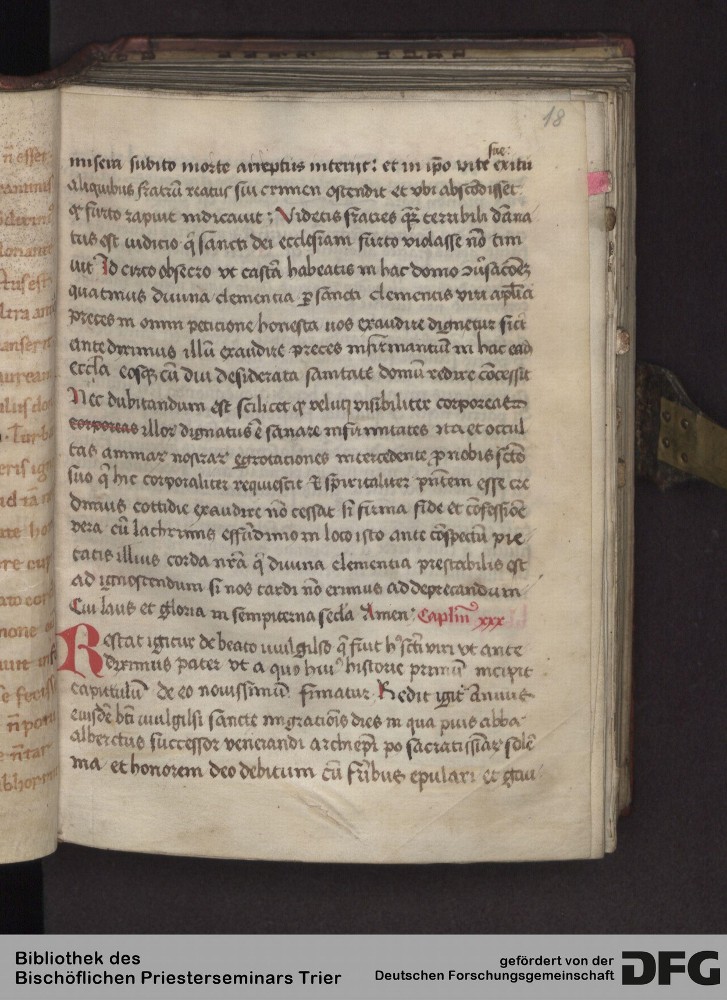 18
sue
misera subito morte arreptus interijt: et in ip̄o vite exitu
aliquibus fratrū reatus sui crimen ostendit et vbi abscōdisset
qͦ furto rapuit indicauit; Videtis fratres qͣ terribili dāna
tus est iudicio qͥ sancti dei ecclesiam furto violasse nō tim
uit Id circo obsecro vt casta habeatis in hac domo
quatinus diuina clementia ꝑ sancti clementis viri aplici
preces in omni peticione honesta uos exaudire dignetur sicͭ
ante diximus illū exaudire preces infirmantiū in hac eadē
eccl̄a eosqꝫ cū diu desiderata sanitate domū redire cōcessit
Nec dubitandum est scilicet qͦ velut visibiliter corporeas
corporeas illoꝝ dignatus ē sanare infirmitates ita et occul
tas animaꝝ nostraꝝ egrotationes intercedente ꝓ nobis scto
suo qͥ hic corporaliter requiescit Et spiritaliter pn̄tem esse cre
dimus cottidie exaudire nō cessat si firma fide et cōfessiōe
vera cū lachrimis effūdimus in loco isto ante cōspectū pie
tatis illius corda nr̄a qͥ diuina clementia prestabilis est
ad ignoscendum si nos tardi nō erimus ad deprecandum
Cui laus et gloria in sempiterna secl̄a Amen: Caplm̄ xxx
Restat igitur de beato wilgilso qͥ fuit hꝰ sct̄i viri vt ante
diximus pater vt a quo huiꝰ historie primū incipit
capitulū de eo nouissimū finiatur Redit igit̄ Annuus
eiusdē bt̄i wilgilsi sancte migratiōis dies in qua pius abba
albertus successor venerandi archiepi po sacratissiaꝝ solē
nia et honorem deo debitum cū fr̄ibus epulari et gau
n̄ esset
Bibliothek des
Bischöflichen Priesterseminars Trier
gefördert von der
Deutschen Forschungsgemeinschaft
DFG